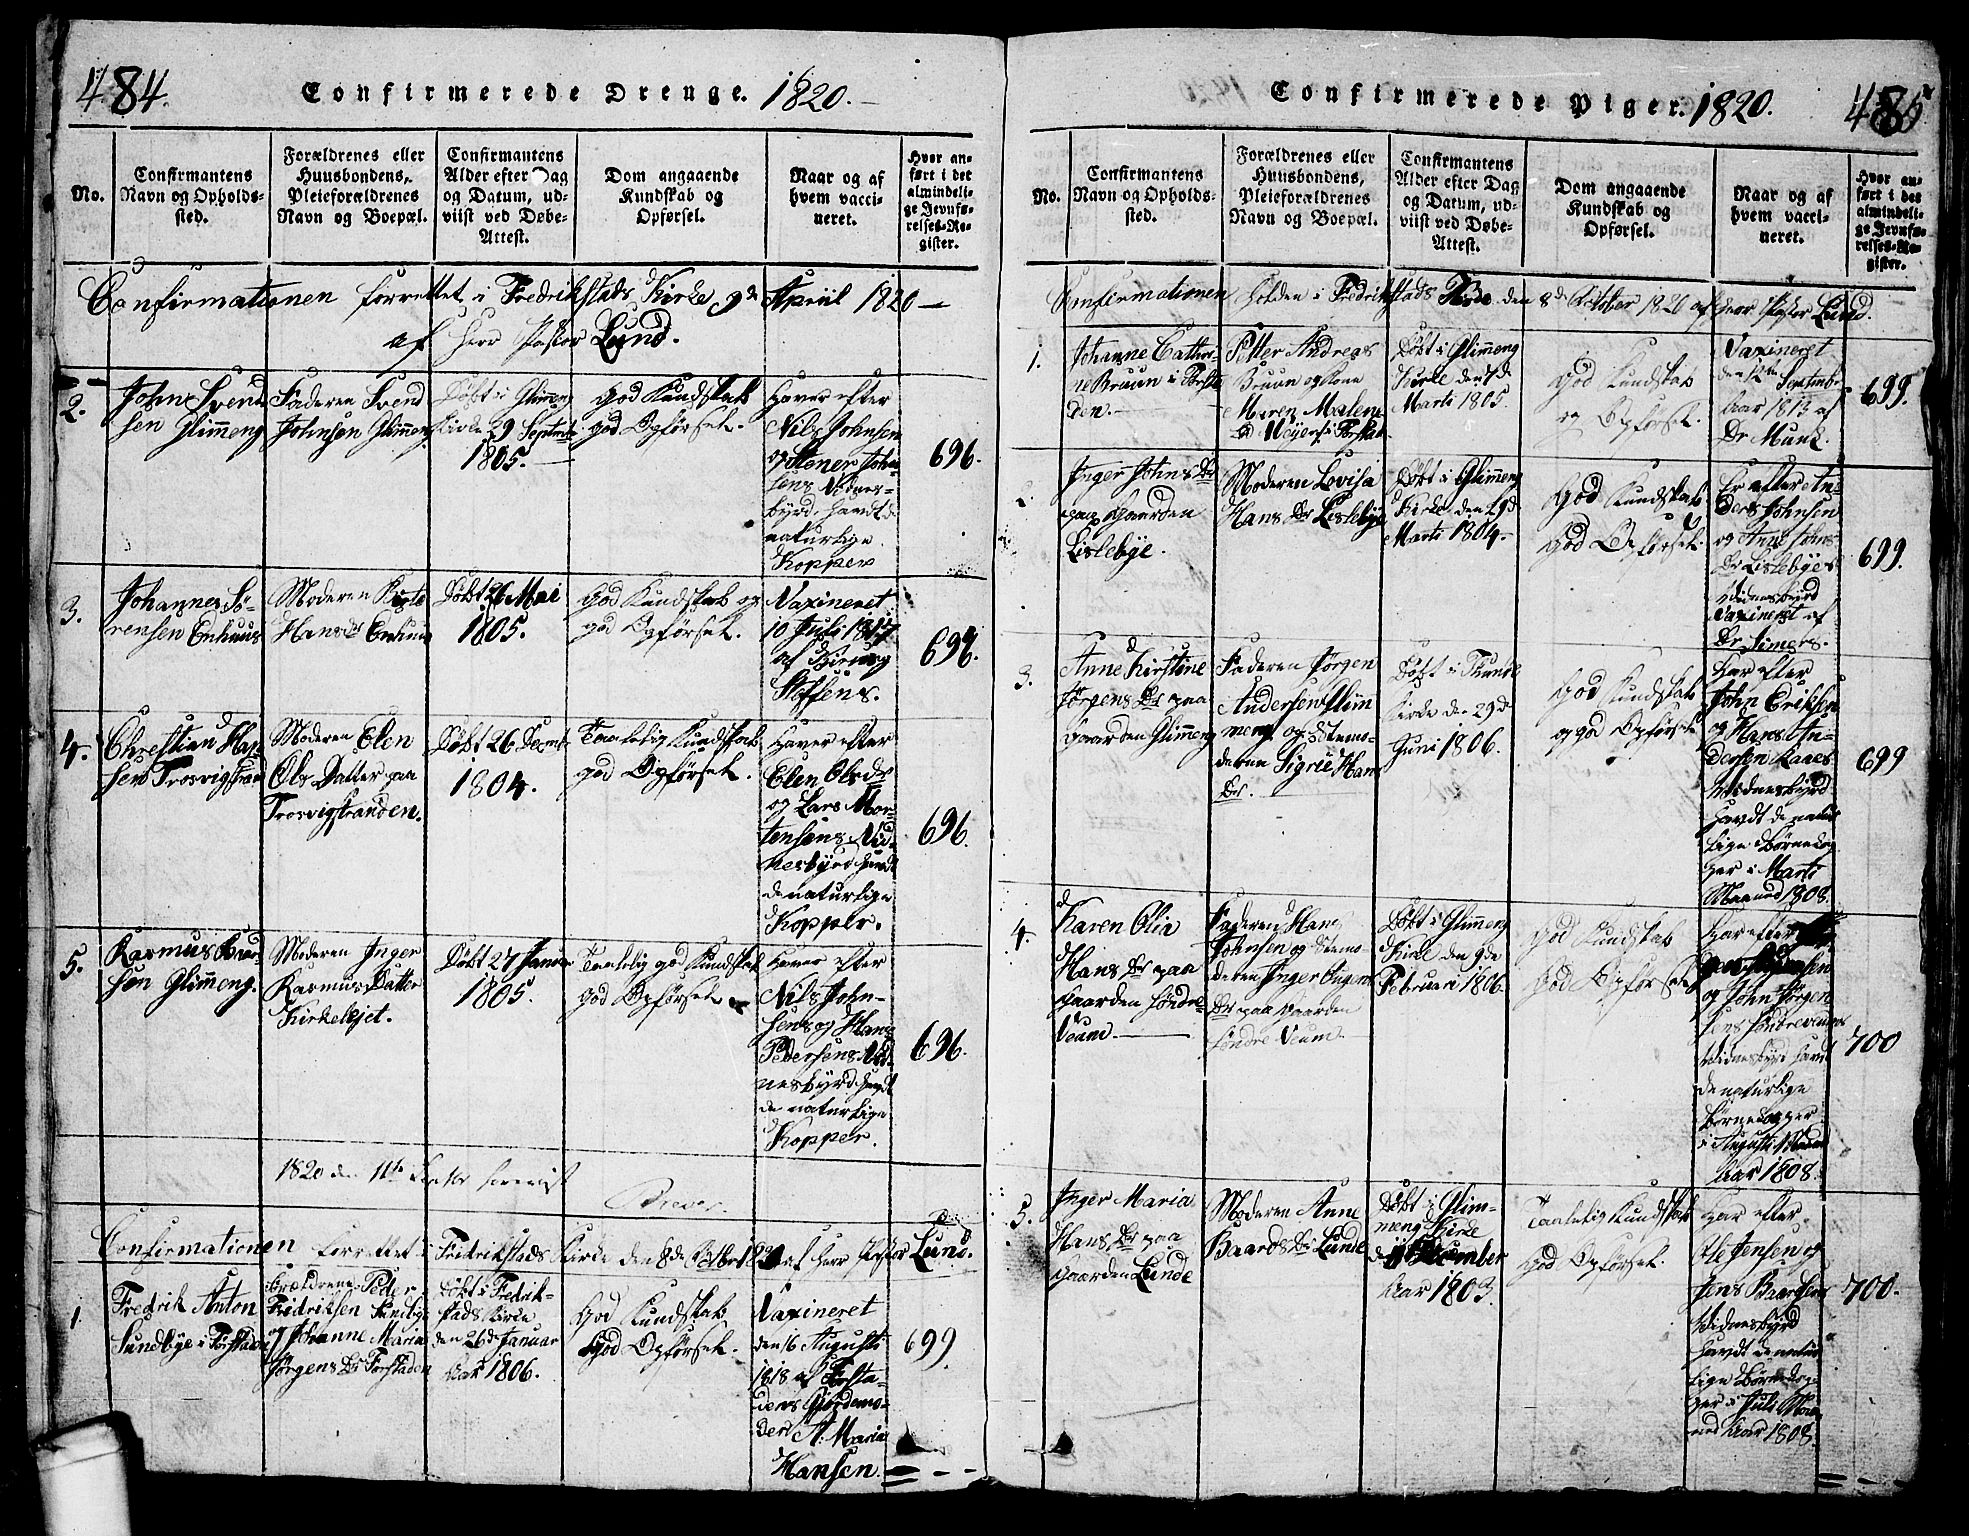 484.
Confirmerede Drenge. 1820.
No.
Confirmantens
Navn og Opholds-
sted.
Forældrenes eller
Huusbondens,
Pleieforældrenes
Navn og Boepæl.
Confirmantens
Alder efter Dag
og Datum, ud-
viist ved Døbe-
Attest.
Dom angaaende
Kundskab og
Opførsel.
Naar og af
hvem vacci-
neret.
Hvor an-
ført i det
almindeli-
ge Jevnfø-
relses-Re-
gister.
Confirmationen forrettet i Fredrikstads Kirke 9de Apriil 1820 —
af Herr Pastor Lund.
2.
John Svend
sen Glimmeng
Faderen Svend
Johnsen Glimmeng
Døbt i Glimeng
Kirke 29 Septembr
1805.
God Kundskab
god Opførsel.
Haver efter
Nils Johnsen
og Stener John-
sens Vidnes-
byrd havdt de
naturlige
Kopper
696.
3.
Johannes Sö-
rensen Enhuus
Moderen Kirste
Hans Dr Enhuus
Døbt 26 Mai
1805.
God Kundskab og
god Opførsel.
Vaxineret
10 Juli 1817
af
Steffens.
696.
4.
Christian Han
sen Trosvigstran
Moderen Elen
Ols Datter paa
Trosvigstranden.
Døbt 26 Decmbr
1804.
Taalelig Kundskab
god Opførsel.
Haver efter
Elen Olsdr
og Lars Mor-
tensens Vid-
nesbyrd havdt
de naturlige
Kopper.
696.
5.
Rasmus
sen Glimmeng.
Moderen Inger
Rasmus Datter
Kirkelejet.
Døbt 27 Januar
1805.
Taalelig god Kundskab
god Opførsel.
Haver efter
Nils John-
sens og Hans
Pedersens Vid-
nesbyrd havdt
de naturlige
Kopper.
696.
1820 den 11te
Confirmationen forrettet i Fredrikstads Kirke den 8de Octbr 1820 af Herr Pastor Lund.
1.
Fredrik Anton
Sundbye i Forstaden
Forældrene Peder
Fridriksen Sundbye
og Johanne Maria
Jörgens Dr Forstaden
Døbt i Fredrik-
stads Kirke
den 26de Januar
Aar 1806.
God Kundskab
God Opførsel.
Vaxineret
den 16 Augusti
1818 af Forsta-
dens Gjordemo-
der A. Maria
Hansen.
699.
485
Confirmerede Piger. 1820.
No.
Confirmantens
Navn og Opholds-
sted.
Forældrenes eller
Huusbondens,
Pleieforældrenes
Navn og Boepæl.
Confirmantens
Alder efter Dag
og Datum, ud-
viist ved Døbe-
Attest.
Dom angaaende
Kundskab og
Opførsel.
Naar og af
hvem vacci-
neret.
Hvor an-
ført i det
almindeli-
ge Jevnfø-
relses-Re-
gister.
Confirmationen holden i Fredrikstads Kirke den 8de October 1820 af Herr Pastor Lund.
1.
Johanne Cathri-
ne Bruun i Forsta
den.
Petter Andreas
Bruun og Kone
Maren Malene
Meyers i Forstad
Døbt i Glimeng
Kirke den 7de
Marti 1805.
God Kundskab
og Opførsel.
Vaxineret
den 12te Septembr
Aar 1813 af
Dr Munk.
699.
2.
Inger Johns Dr
paa Gaarden
Lislebye.
Moderen Lovisa
Hans Dr Lislebye
Døbt i Glimeng
Kirke den 29de
Marti 1804.
God Kundskab
God Opførsel.
Er efter An-
ders Johnsen
og Anne Johns
Dr Lislebyes
Vidnesbyrd
Vaxineret af
Dr Simers.
699.
3.
Anne Kirstine
Jörgens Dr paa
Gaarden Glimmeng
Faderen Jörgen
Andersen Glim
meng og Stemo-
deren Sigrie Hans
Dr.
Døbt i Thunde
Kirke den 29de
Juni 1806.
God Kundskab
og god Opførsel
Har efter
John Eriksen
og Hans An-
dersen Kaaes
Vidnesbyrd
havdt de natur
lige Børnekop
per i Marti
Maaned 1808.
699
4.
Karen Olia
Hans Dr paa
Gaarden Söndre
Veum
Faderen Hans
Johnsen og Stemo-
deren Inger Ingers
Dr paa Gaarden
Söndre Veum
Døbt i Glimmeng
Kirke den 9de
Februari 1806.
God Kundskab
God Opførsel
Har efter
og John Jörgen
sens Söndre Veums
Vidnesbyrd havdt
de naturlige
Børnekopper
i Augusti Maaned
Aar 1808.
700
5.
Inger Maria
Hans Dr paa
Gaarden Lunde
Moderen Anne
Baards Dr Lunde
Døbt i Glim-
meng Kirke
d 11 December
Aar 1803.
Taalelig Kundskab
God Opførsel.
Har efter
Ole Jensen og
Jens Baardsens
Vidnesbyrd
havdt de natur
lige Børnekop-
per i Juli Maa-
ned Aar 1808.
700.